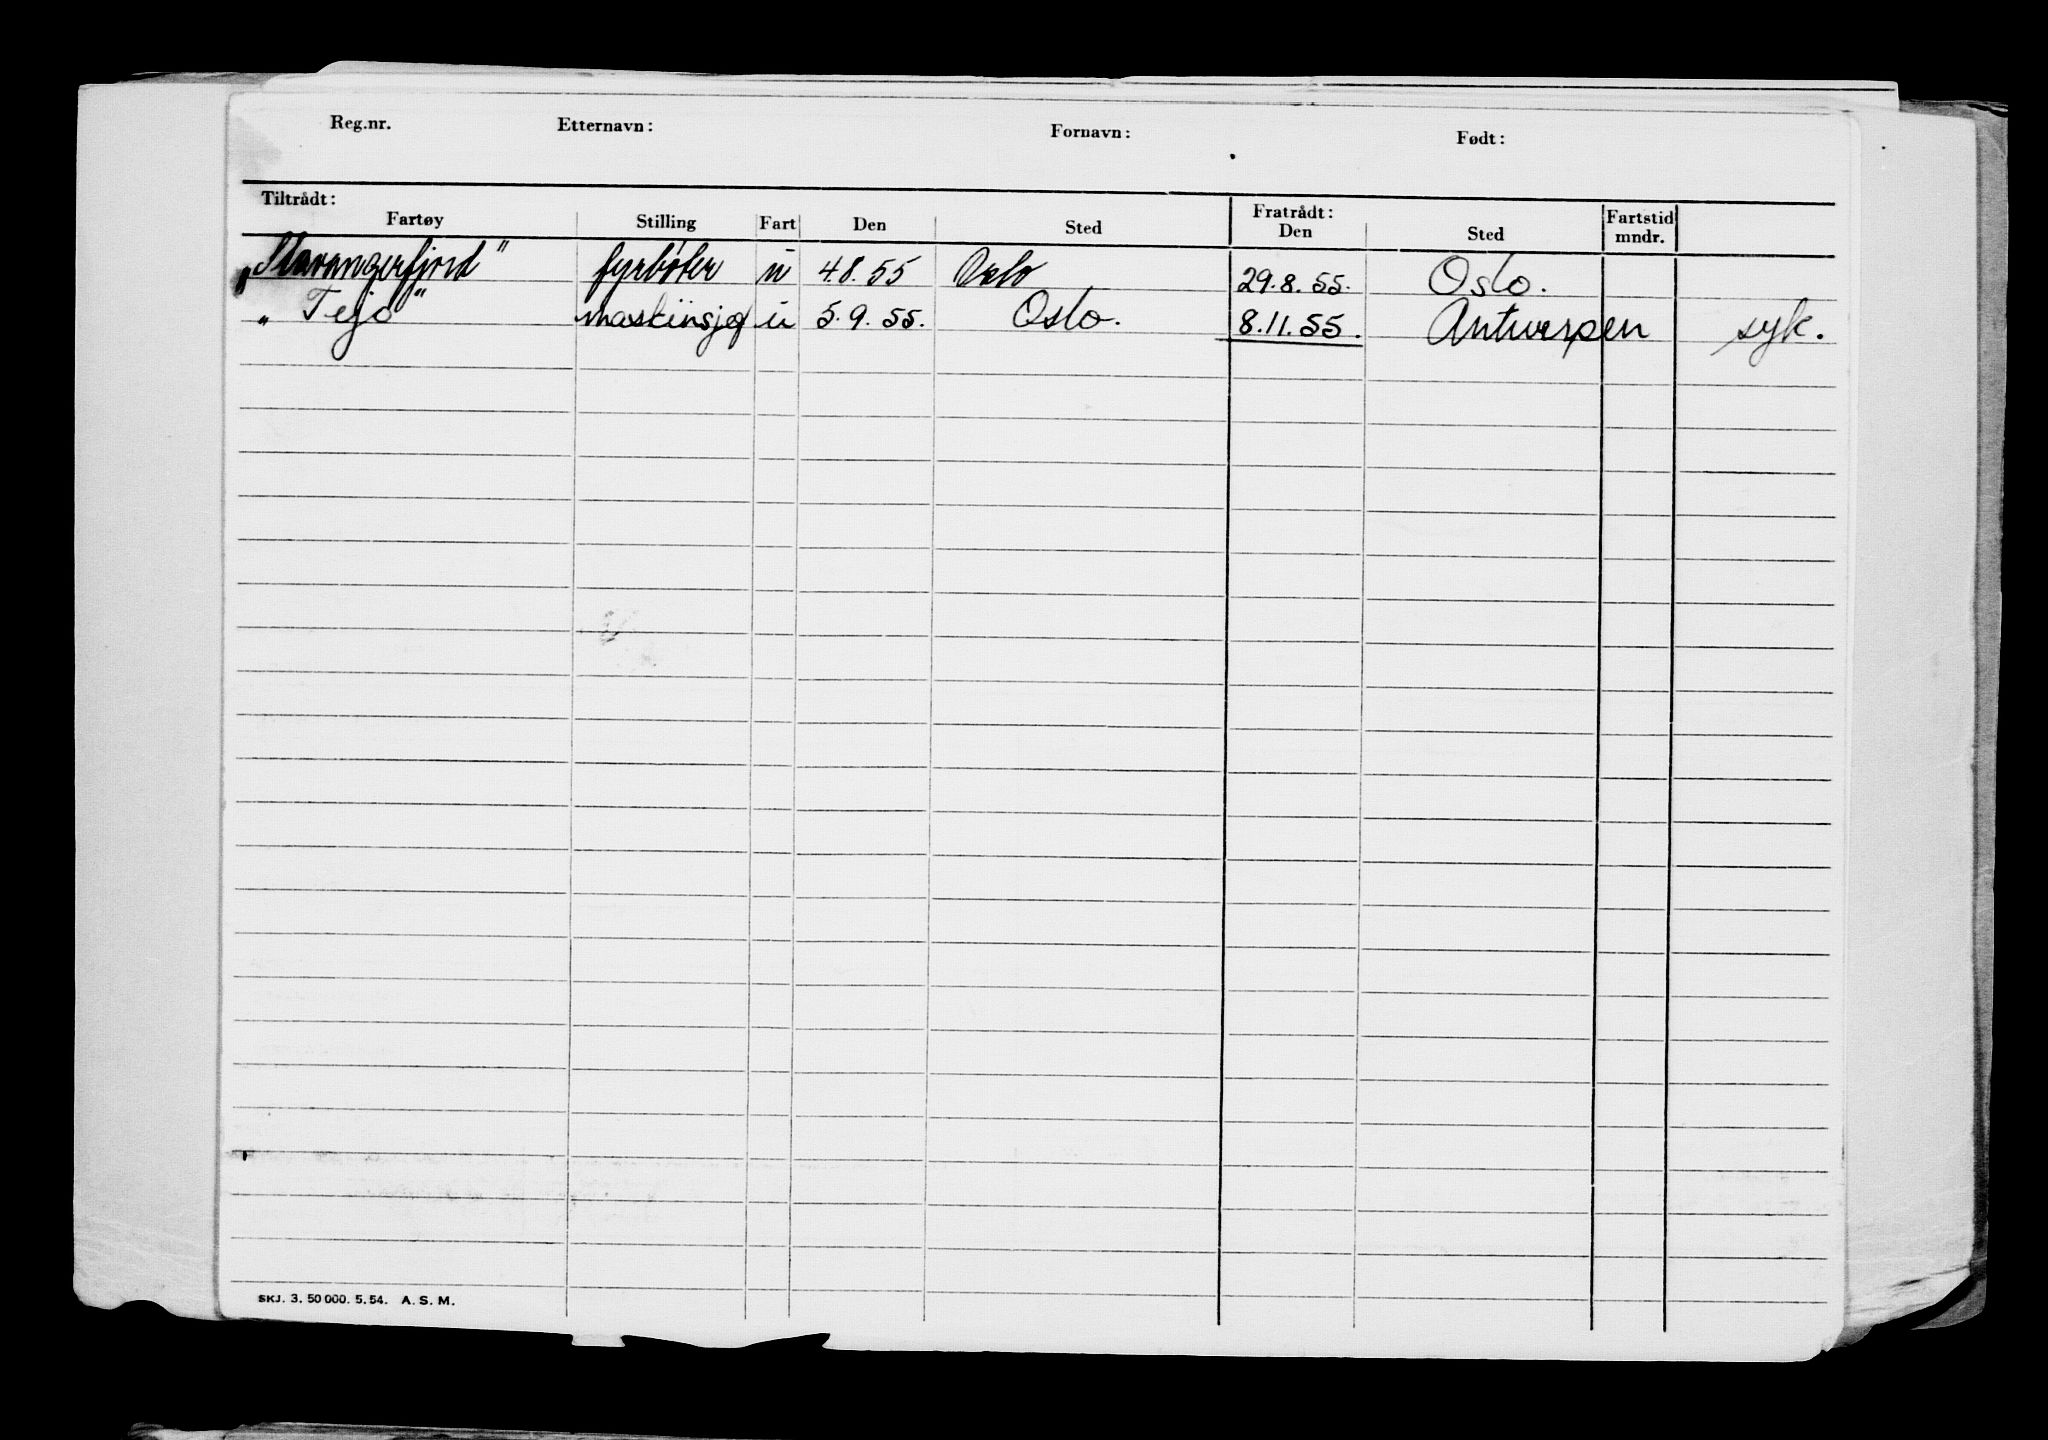 Reg.nr. Etternavn: Fornavn: Født:
Tiltrådt: Fratrådt:
Fartøy Stilling Fart Den Sted Den Sted Fartstid mndr.
„Stavangerfjord" fyrbøter u 4.8.55 Oslo 29.8.55. Oslo.
„Tejo" maskinsjef u 5.9.55. Oslo. 8.11.55. Antwerpen syk.
SKJ. 3. 50 000. 5. 54. A. S. M.